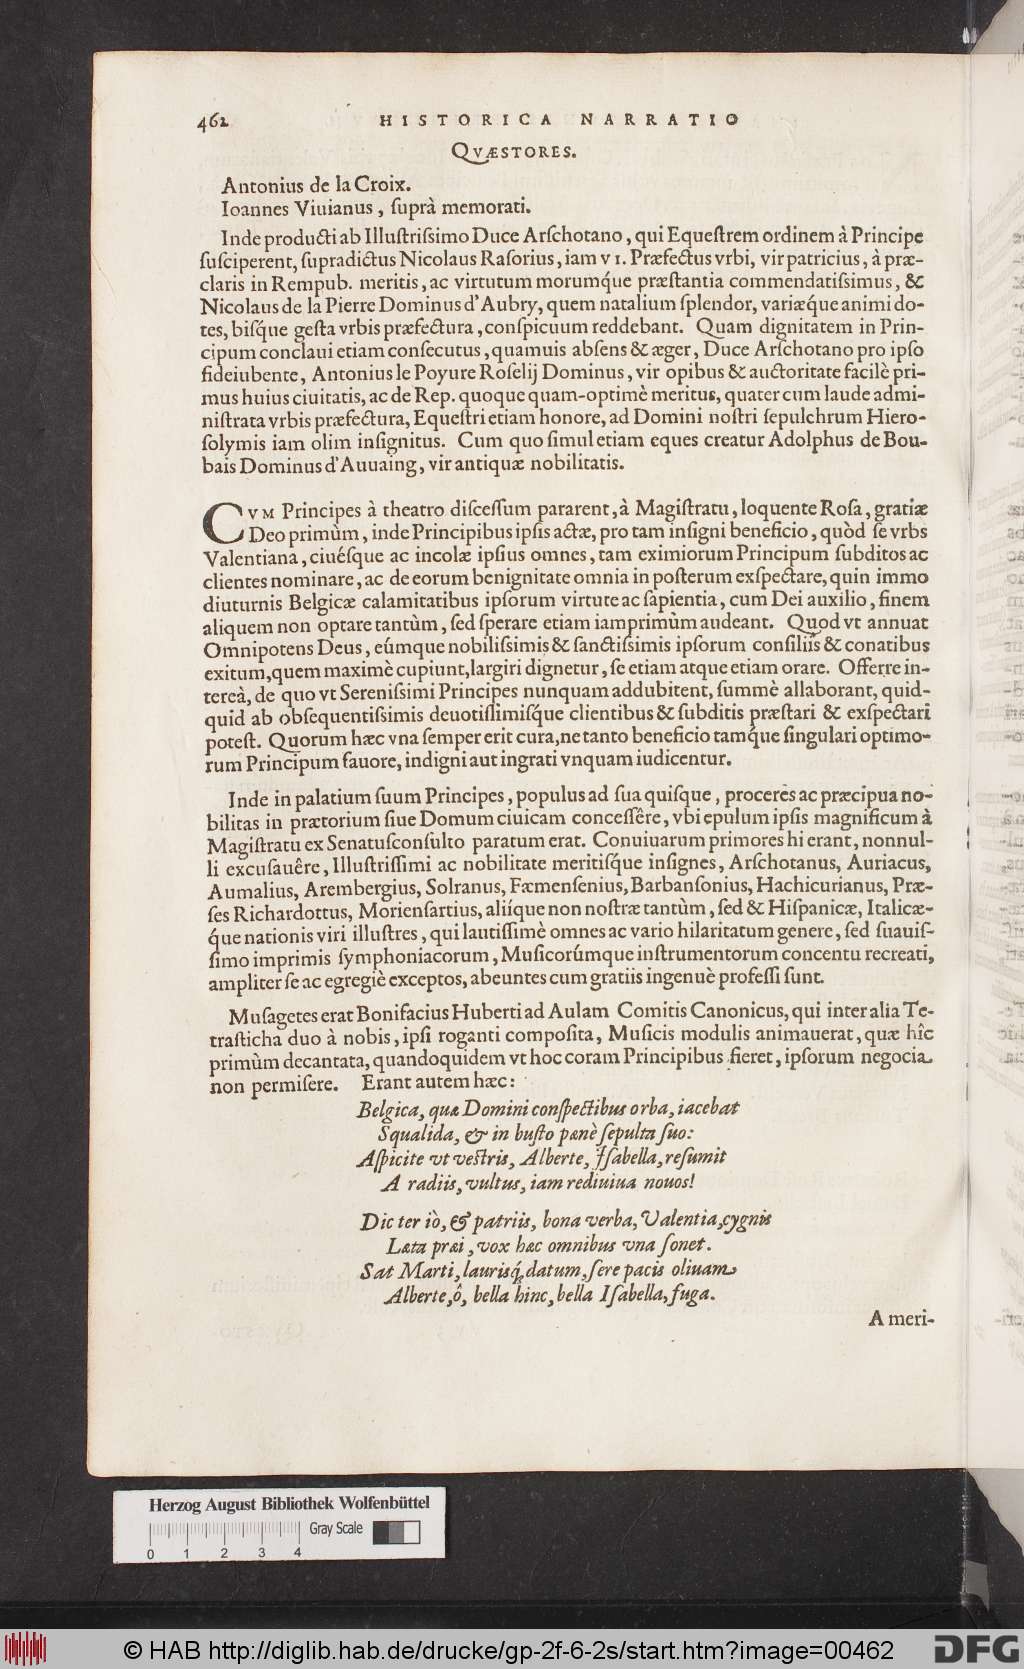 462 HISTORICA NARRATIO
QVÆSTORES.
Antonius de la Croix.
Ioannes Viuianus, ſuprà memorati.
Inde producti ab Illuſtriſsimo Duce Arſchotano, qui Equeſtrem ordinem à Principe
ſuſciperent, ſupradictus Nicolaus Raſorius, iam VI. Præfectus vrbi, vir patricius, à præ-
claris in Rempub. meritis, ac virtutum morumq́ue præſtantia commendatiſsimus, &
Nicolaus de la Pierre Dominus d'Aubry, quem natalium ſplendor, variæq́ue animi do-
tes, biſque geſta vrbis præfectura, conſpicuum reddebant. Quam dignitatem in Prin-
cipum conclaui etiam conſecutus, quamuis abſens & æger, Duce Arſchotano pro ipſo
fideiubente, Antonius le Poyure Roſelij Dominus, vir opibus & auctoritate facilè pri-
mus huius ciuitatis, ac de Rep. quoque quam-optimè meritus, quater cum laude admi-
niſtrata vrbis præfectura, Equeſtri etiam honore, ad Domini noſtri ſepulchrum Hiero-
ſolymis iam olim inſignitus. Cum quo ſimul etiam eques creatur Adolphus de Bou-
bais Dominus d'Auuaing, vir antiquæ nobilitatis.
CVM Principes à theatro diſceſſum pararent, à Magiſtratu, loquente Roſa, gratiæ
Deo primùm, inde Principibus ipſis actæ, pro tam inſigni beneficio, quòd ſe vrbs
Valentiana, ciuéſque ac incolæ ipſius omnes, tam eximiorum Principum ſubditos ac
clientes nominare, ac de eorum benignitate omnia in poſterum exſpectare, quin immo
diuturnis Belgicæ calamitatibus ipſorum virtute ac ſapientia, cum Dei auxilio, finem
aliquem non optare tantùm, ſed ſperare etiam iamprimùm audeant. Quod vt annuat
Omnipotens Deus, eúmque nobiliſsimis & ſanctiſsimis ipſorum conſiliis & conatibus
exitum, quem maximè cupiunt, largiri dignetur, ſe etiam atque etiam orare. Offerre in-
tereà, de quo vt Sereniſsimi Principes nunquam addubitent, ſummè allaborant, quid-
quid ab obſequentiſsimis deuotiſſimiſq́ue clientibus & ſubditis præſtari & exſpectari
poteſt. Quorum hæc vna ſemper erit cura, ne tanto beneficio tamq́ue ſingulari optimo-
rum Principum fauore, indigni aut ingrati vnquam iudicentur.
Inde in palatium ſuum Principes, populus ad ſua quiſque, proceres ac præcipua no-
bilitas in prætorium ſiue Domum ciuicam conceſſêre, vbi epulum ipſis magnificum à
Magiſtratu ex Senatuſconſulto paratum erat. Conuiuarum primores hi erant, nonnul-
li excuſauêre, Illuſtriſſimi ac nobilitate meritiſque inſignes, Arſchotanus, Auriacus,
Aumalius, Arembergius, Solranus, Fæmenſenius, Barbanſonius, Hachicurianus, Præ-
ſes Richardottus, Morienſartius, aliíque non noſtræ tantùm, ſed & Hiſpanicæ, Italicæ-
q́ue nationis viri illuſtres, qui lautiſſimè omnes ac vario hilaritatum genere, ſed ſuauiſ-
ſimo imprimis ſymphoniacorum, Muſicorúmque inſtrumentorum concentu recreati,
ampliter ſe ac egregiè exceptos, abeuntes cum gratiis ingenuè profeſſi ſunt.
Muſagetes erat Bonifacius Huberti ad Aulam Comitis Canonicus, qui inter alia Te-
traſticha duo à nobis, ipſi roganti compoſita, Muſicis modulis animauerat, quæ hîc
primùm decantata, quandoquidem vt hoc coram Principibus fieret, ipſorum negocia
non permiſere. Erant autem hæc:
Belgica, quæ Domini conſpectibus orba, iacebat
Squalida, & in buſto pænè ſepulta ſuo:
Aſpicite vt veſtris, Alberte, Iſabella, reſumit
A radiis, vultus, iam rediuiua nouos!
Dic ter iò, & patriis, bona verba, Valentia, cygnis
Læta præi, vox hæc omnibus vna ſonet.
Sat Marti, lauriſq́; datum, ſere pacis oliuam
Alberte, ô, bella hinc, bella Iſabella, fuga.
A meri-
Herzog August Bibliothek Wolfenbüttel
Gray Scale
0 1 2 3 4
© HAB http://diglib.hab.de/drucke/gp-2f-6-2s/start.htm?image=00462
DFG